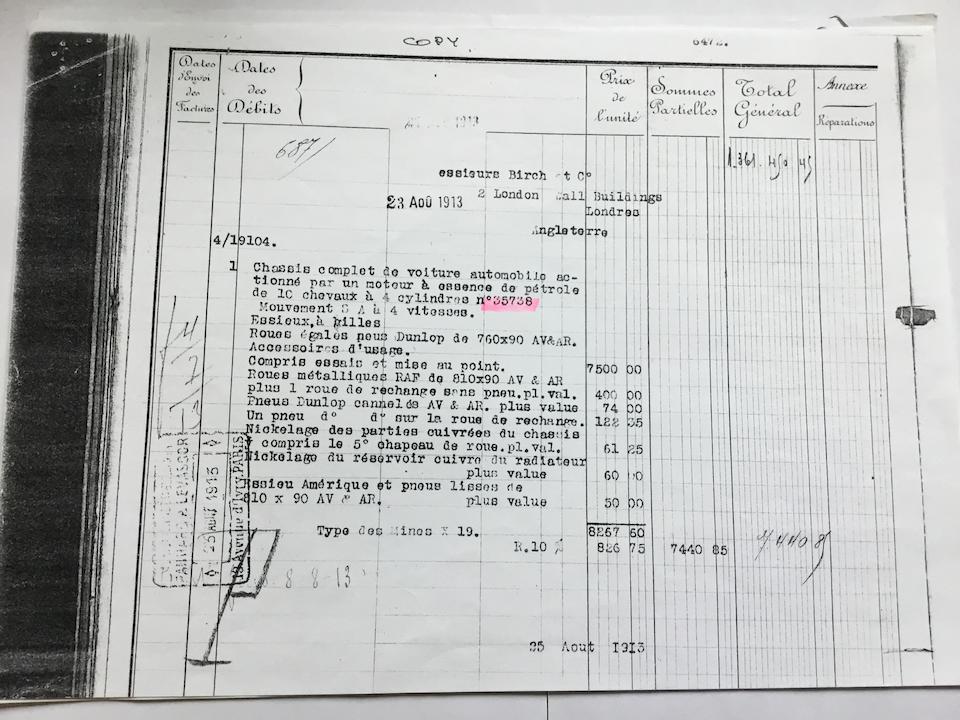 COPY.
Dates d'Envoi des Factures
Dates des Débits
Prix de l'unité
Sommes Partielles
Total Général
Annexe
Réparations
1913
687/
1.361.450 45
essieurs Birch et C°
23 AOÛ 1913
2 London Wall Buildings
Londres
Angleterre
4/19104.
1 Chassis complet de voiture automobile ac-
tionné par un moteur à essence de pétrole
de 10 chevaux à 4 cylindres n°35738
Mouvement S A à 4 vitesses.
Essieux à billes
Roues égales pneus Dunlop de 760x90 AV&AR.
Accessoires d'usage.
Compris essais et mise au point. 7500 00
Roues métalliques RAF de 810x90 AV & AR
plus 1 roue de rechange sans pneu.pl.val. 400 00
Pneus Dunlop cannelés AV & AR. plus value 74 00
Un pneu d° d° sur la roue de rechange. 122 35
Nickelage des parties cuivrées du chassis
y compris le 5° chapeau de roue.pl.val. 61 25
Nickelage du réservoir cuivre du radiateur
plus value 60 00
Essieu Amérique et pneus lisses de
810 x 90 AV & AR. plus value 50 00
Type des Mines X 19. 8267 60
R.10 % 826 75 7440 85 7440 85
PANHARD & LEVASSOR
25 AOÛ 1913
19 Avenue d'Ivry, PARIS
8 8-13
25 Aout 1913